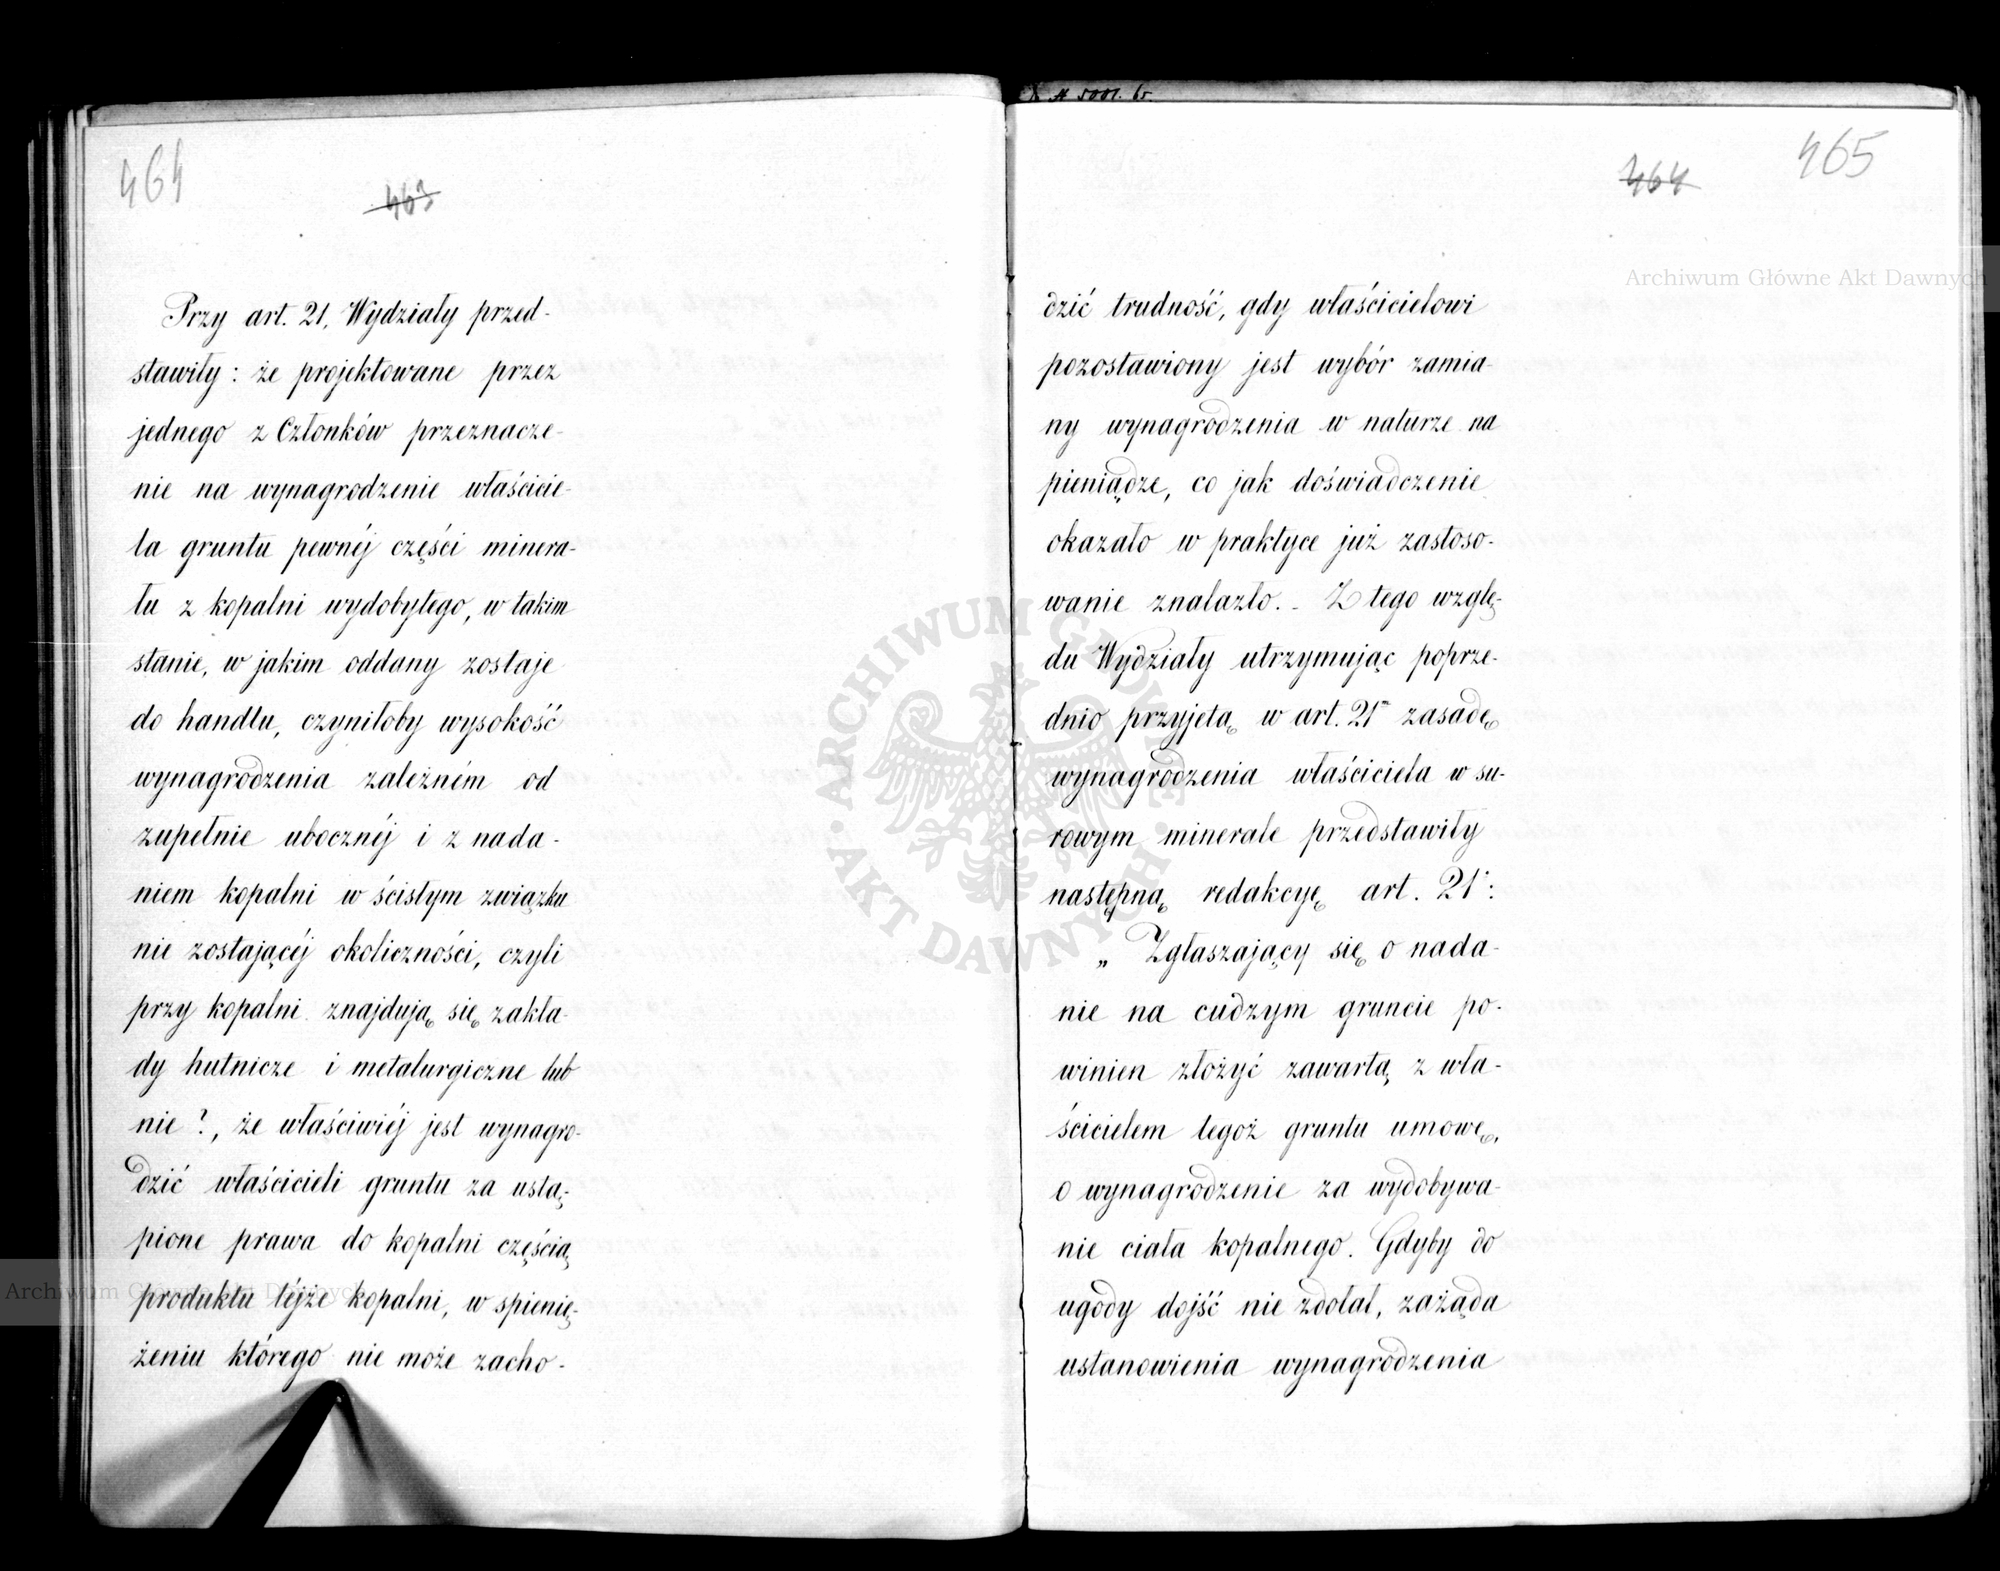 464
463
Przy art. 21, Wydziały przed-
stawiły: że projektowane przez
jednego z Członków przeznacze-
nie na wynagrodzenie właścicie-
la gruntu pewnéj części minera-
łu z kopalni wydobytego, w takim
stanie, w jakim oddany zostaje
do handlu, czyniłoby wysokość
wynagrodzenia zależném od
zupełnie ubocznéj i z nada-
niem kopalni w ścisłym związku
nie zostającéj okoliczności, czyli
przy kopalni znajdują się zakła-
dy hutnicze i metalurgiczne lub
nie?, że właściwiéj jest wynagro-
dzić właścicieli gruntu za ustą-
pione prawa do kopalni częścią
produktu téjże kopalni, w spienię-
żeniu którego nie może zacho-
465
464
dzić trudność, gdy właścicielowi
pozostawiony jest wybór zamia-
ny wynagrodzenia w naturze na
pieniądze, co jak doświadczenie
okazało w praktyce już zastoso-
wanie znalazło. - Z tego wzglę-
du Wydziały utrzymując poprze-
dnio przyjętą w art. 21m zasadę
wynagrodzenia właściciela w su-
rowym minerale przedstawiły
następną redakcyę art. 21:
„Zgłaszający się o nada-
nie na cudzym gruncie po-
winien złożyć zawartą z wła-
ścicielem tegoż gruntu umowę,
o wynagrodzenie za wydobywa-
nie ciała kopalnego. Gdyby do
ugody dojść nie zdołał, zażąda
ustanowienia wynagrodzenia
Archiwum Główne Akt Dawnych
Archiwum Główne Akt Dawnych
ARCHIWUM GŁÓWNE AKT DAWNYCH